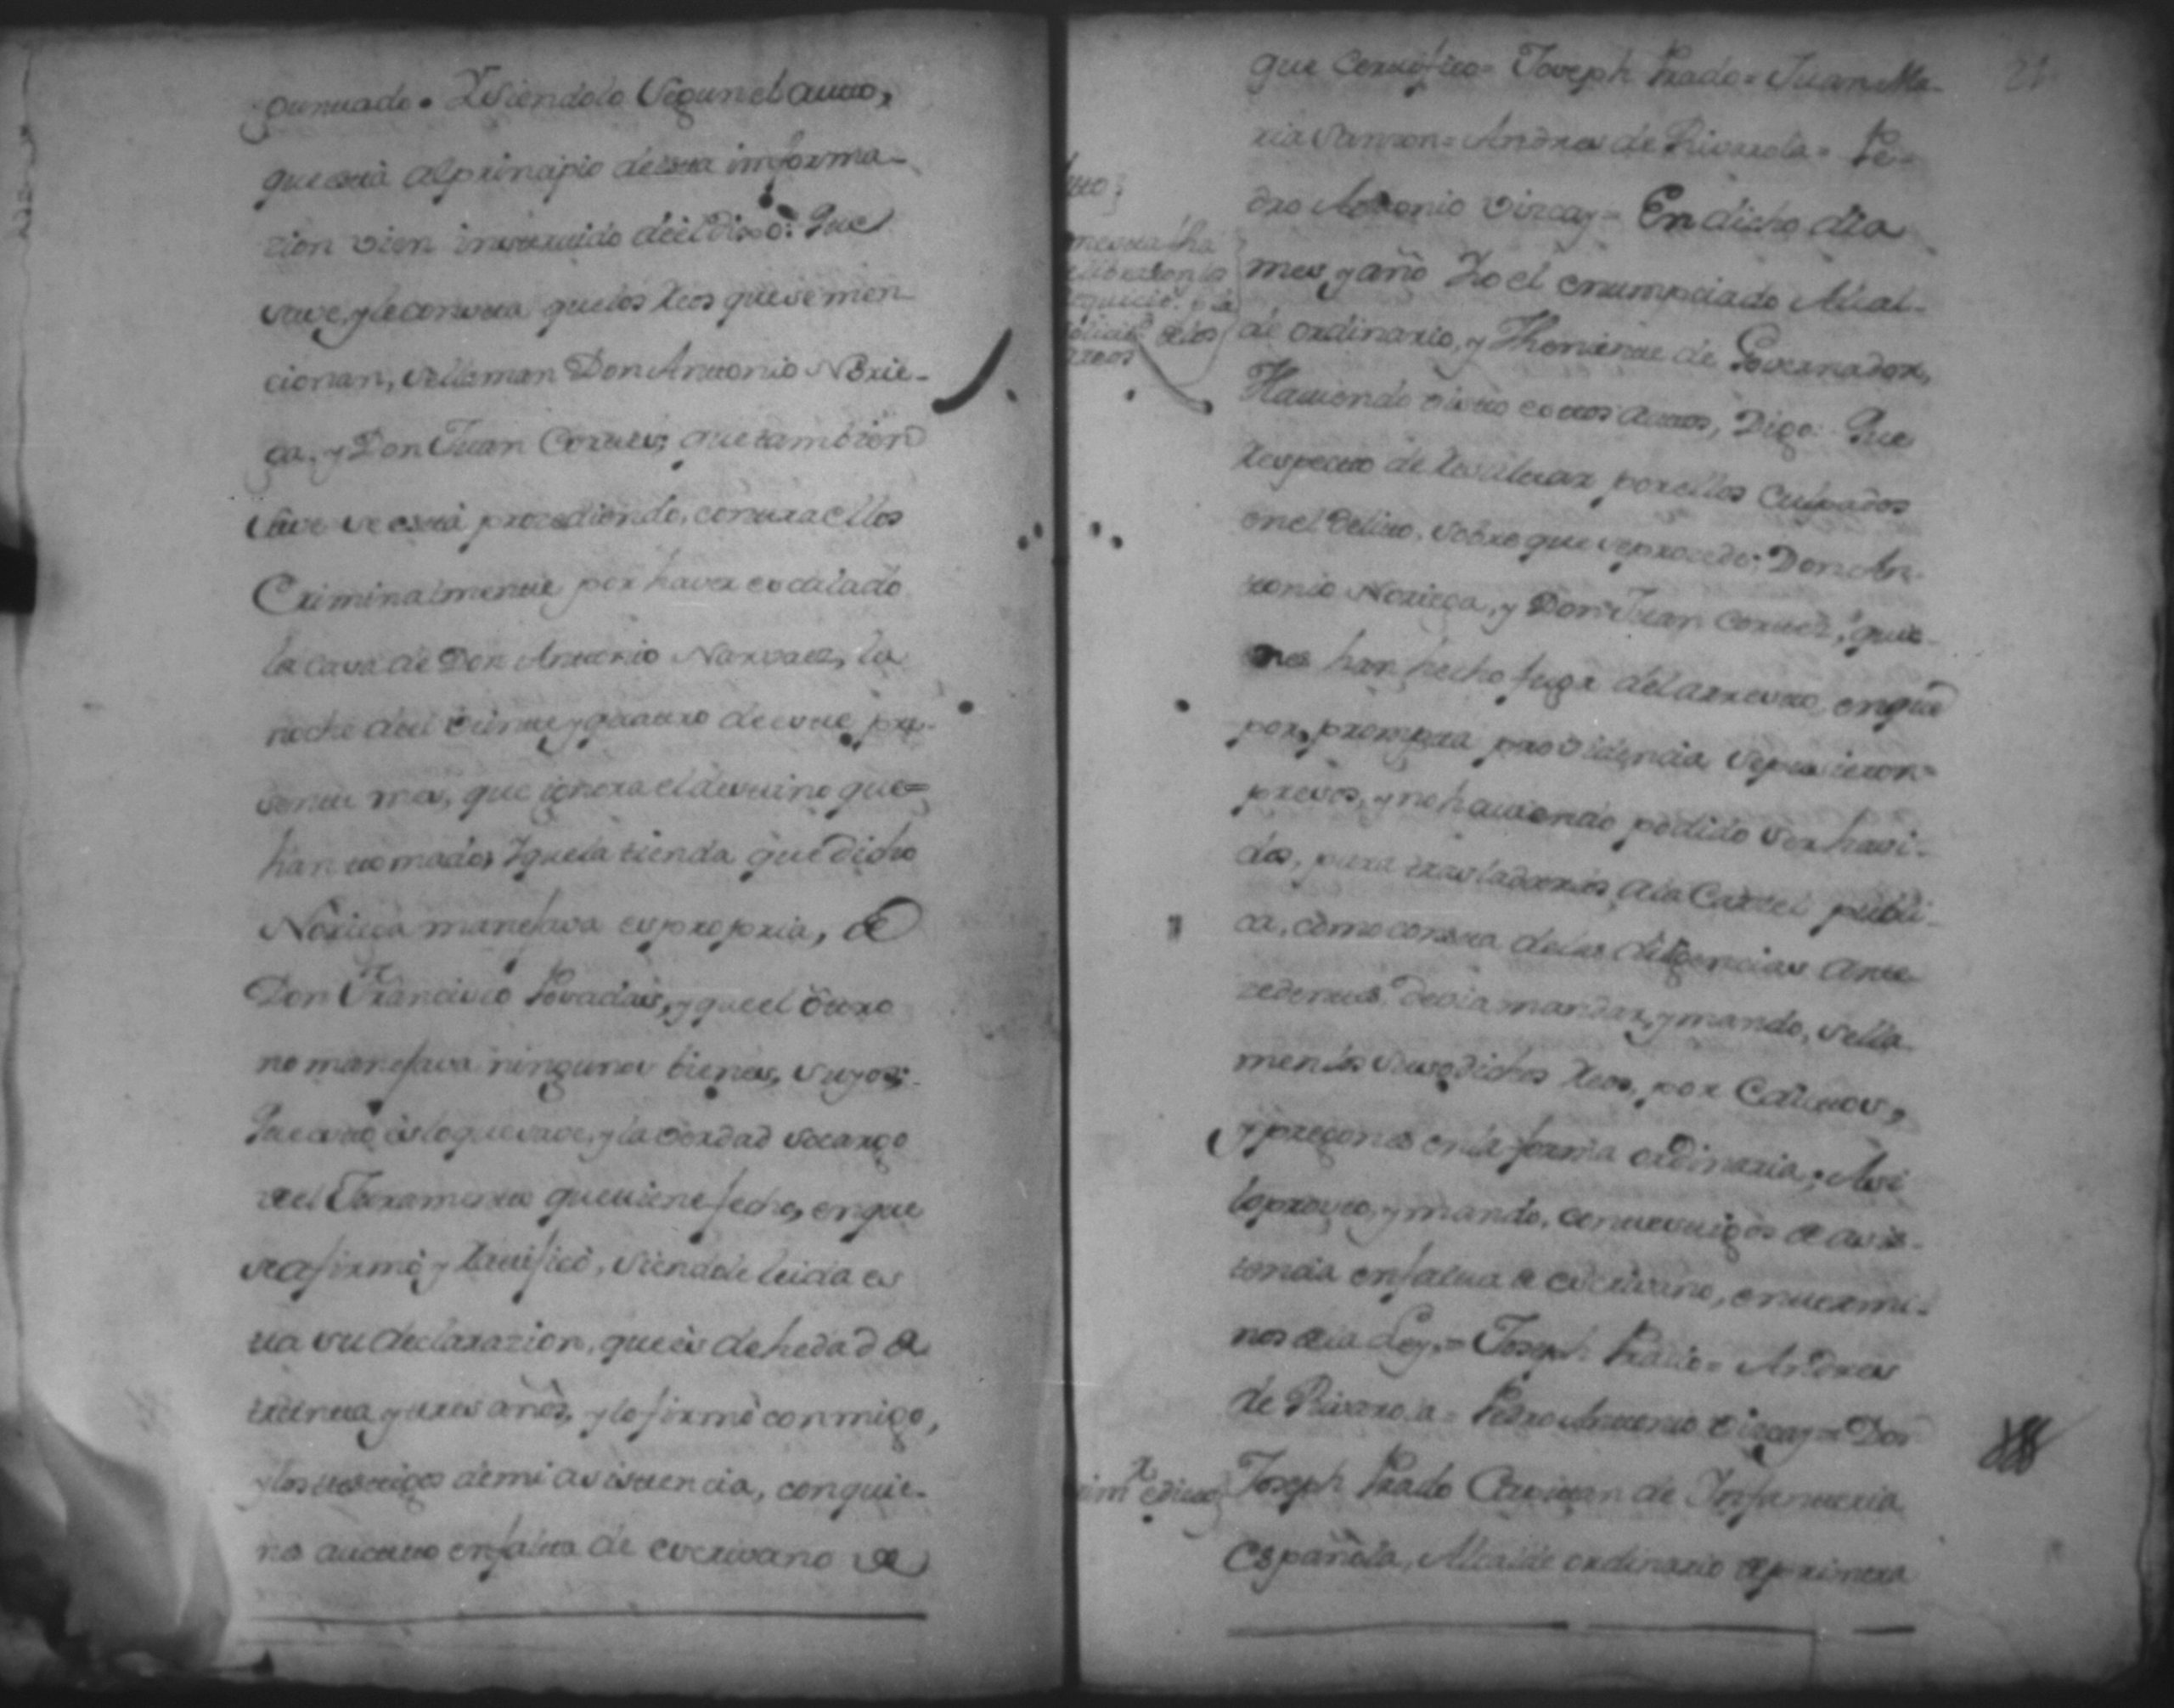 guntado. Y siendolo segun el auto,
que està al principio de esta informa-
zion vien instruido de èl Dixo: Que
save, y le consta que los Reos que se men-
cionan, se llaman Don Antonio Norie-
ga, y Don Juan Cortes; que tambien
save se està procediendo, contra ellos
Criminalmente por haver escalado
la casa de Don Antonio Narvaez, la
noche del veinte y quatro de este pre-
sente mes, que ignora el destino que=
han tomado, Y que la tienda que dicho
Noriega manejava es propria, de
Don Francisco Posadas, y que el òtro
no manejava ningunos bienes, suyos;
Que esto ès lo que save, y la verdad so cargo
de el Juramento que tiene fecho, en que
se afirmò y Ratificò, siendole leida es
ta su declarazion, que ès de hedad de
treinta y tres años, y lo firmò conmigo,
y los testigos de mi asistencia, con quie-
nes auctuo en falta de escrivano de
21
que Certifico= Joseph Prado= Juan Ma-
ria Sanzon= Andres de Rivarola= Pe-
dro Antonio Vircay= En dicho dia
mes, y año Yo el enumpciado Alcal-
de ordinario, y Theniente de Governador,
Haviendo visto estos autos, Digo: Que
respecto de Resultar por ellos Culpados
en el Delito, sobre que se procede: Don An-
tonio Noriega, y Don Juan Cortes, quie-
nes han hecho fuga del arresto, en que
por, prompta providencia se pusieron=
presos, y no haviendo podido ser havi-
dos, para trasladarlos à la Carzel publi-
ca, como consta de las diligencias ante
zedentes. Devia mandar, y mando, se lla-
men los susodichos Reos, por Edictos,
y pregones en la forma ordinaria; Asi
lo proveo, y mando, con testigos de asis-
tencia en falta de escrivano, en termi-
nos de la Ley,= Joseph Prado= Andres
de Rivarola= Pedro Antonio Vircay= Don
Joseph Prado Capitan de Infanteria
Española, Alcalde ordinario de primera